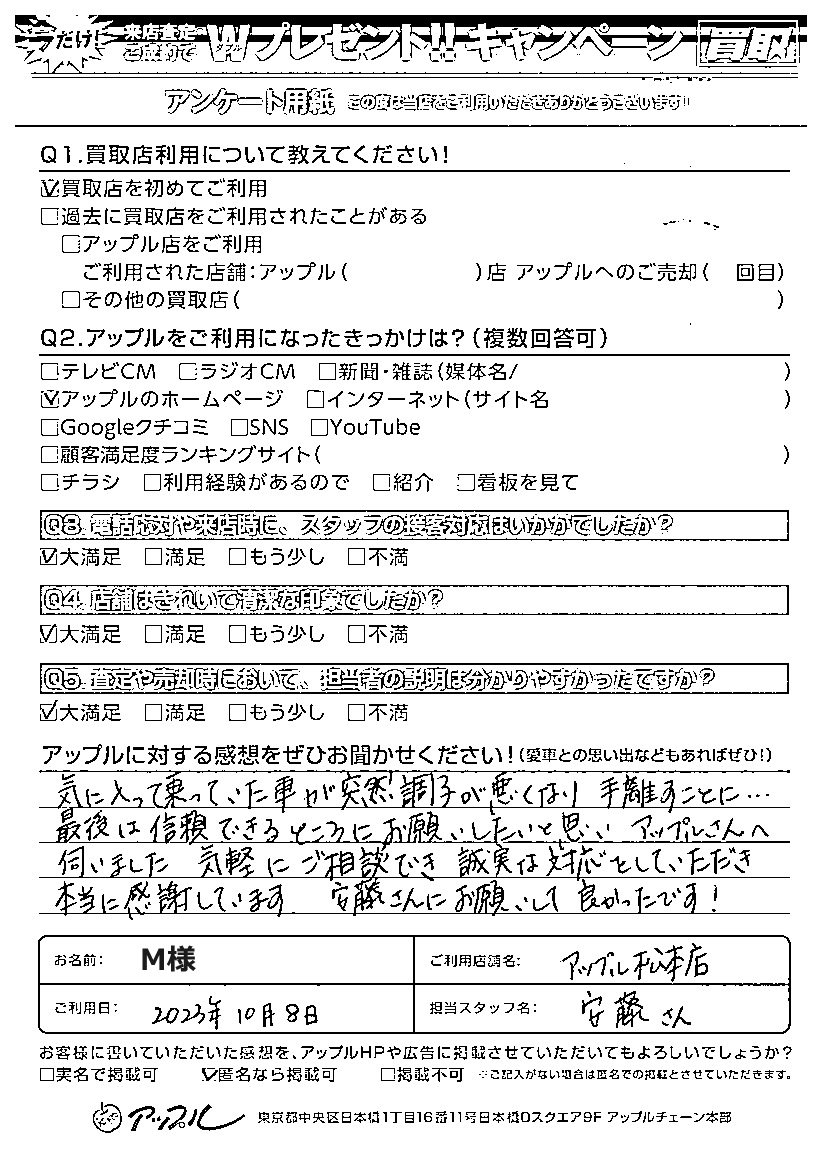 だけ! 来店査定・ご成約で Wプレゼント!! キャンペーン 買取
アンケート用紙 この度は当店をご利用いただきありがとうございます!!
Q1.買取店利用について教えてください!
☑買取店を初めてご利用
□過去に買取店をご利用されたことがある
□アップル店をご利用
ご利用された店舗:アップル( )店 アップルへのご売却( 回目)
□その他の買取店( )
Q2.アップルをご利用になったきっかけは?(複数回答可)
□テレビCM □ラジオCM □新聞・雑誌(媒体名/ )
☑アップルのホームページ □インターネット(サイト名 )
□Googleクチコミ □SNS □YouTube
□顧客満足度ランキングサイト( )
□チラシ □利用経験があるので □紹介 □看板を見て
Q3.電話応対や来店時に、スタッフの接客対応はいかがでしたか?
☑大満足 □満足 □もう少し □不満
Q4.店舗はきれいで清潔な印象でしたか?
☑大満足 □満足 □もう少し □不満
Q5.査定や売却時において、担当者の説明は分かりやすかったですか?
☑大満足 □満足 □もう少し □不満
アップルに対する感想をぜひお聞かせください!(愛車との思い出などもあればぜひ!)
気に入って乗っていた車が突然調子が悪くなり 手離すことに…
最後は信頼できるところにお願いしたいと思い アップルさんへ
伺いました 気軽にご相談でき 誠実な対応としていただき
本当に感謝しています 安藤さんにお願いして良かったです!
お名前: M様 ご利用店舗名: アップル松本店
ご利用日: 2023年10月8日 担当スタッフ名: 安藤さん
お客様に書いていただいた感想を、アップルHPや広告に掲載させていただいてもよろしいでしょうか?
□実名で掲載可 ☑匿名なら掲載可 □掲載不可 ※ご記入がない場合は匿名での掲載とさせていただきます。
アップル 東京都中央区日本橋1丁目16番11号日本橋Dスクエア9F アップルチェーン本部